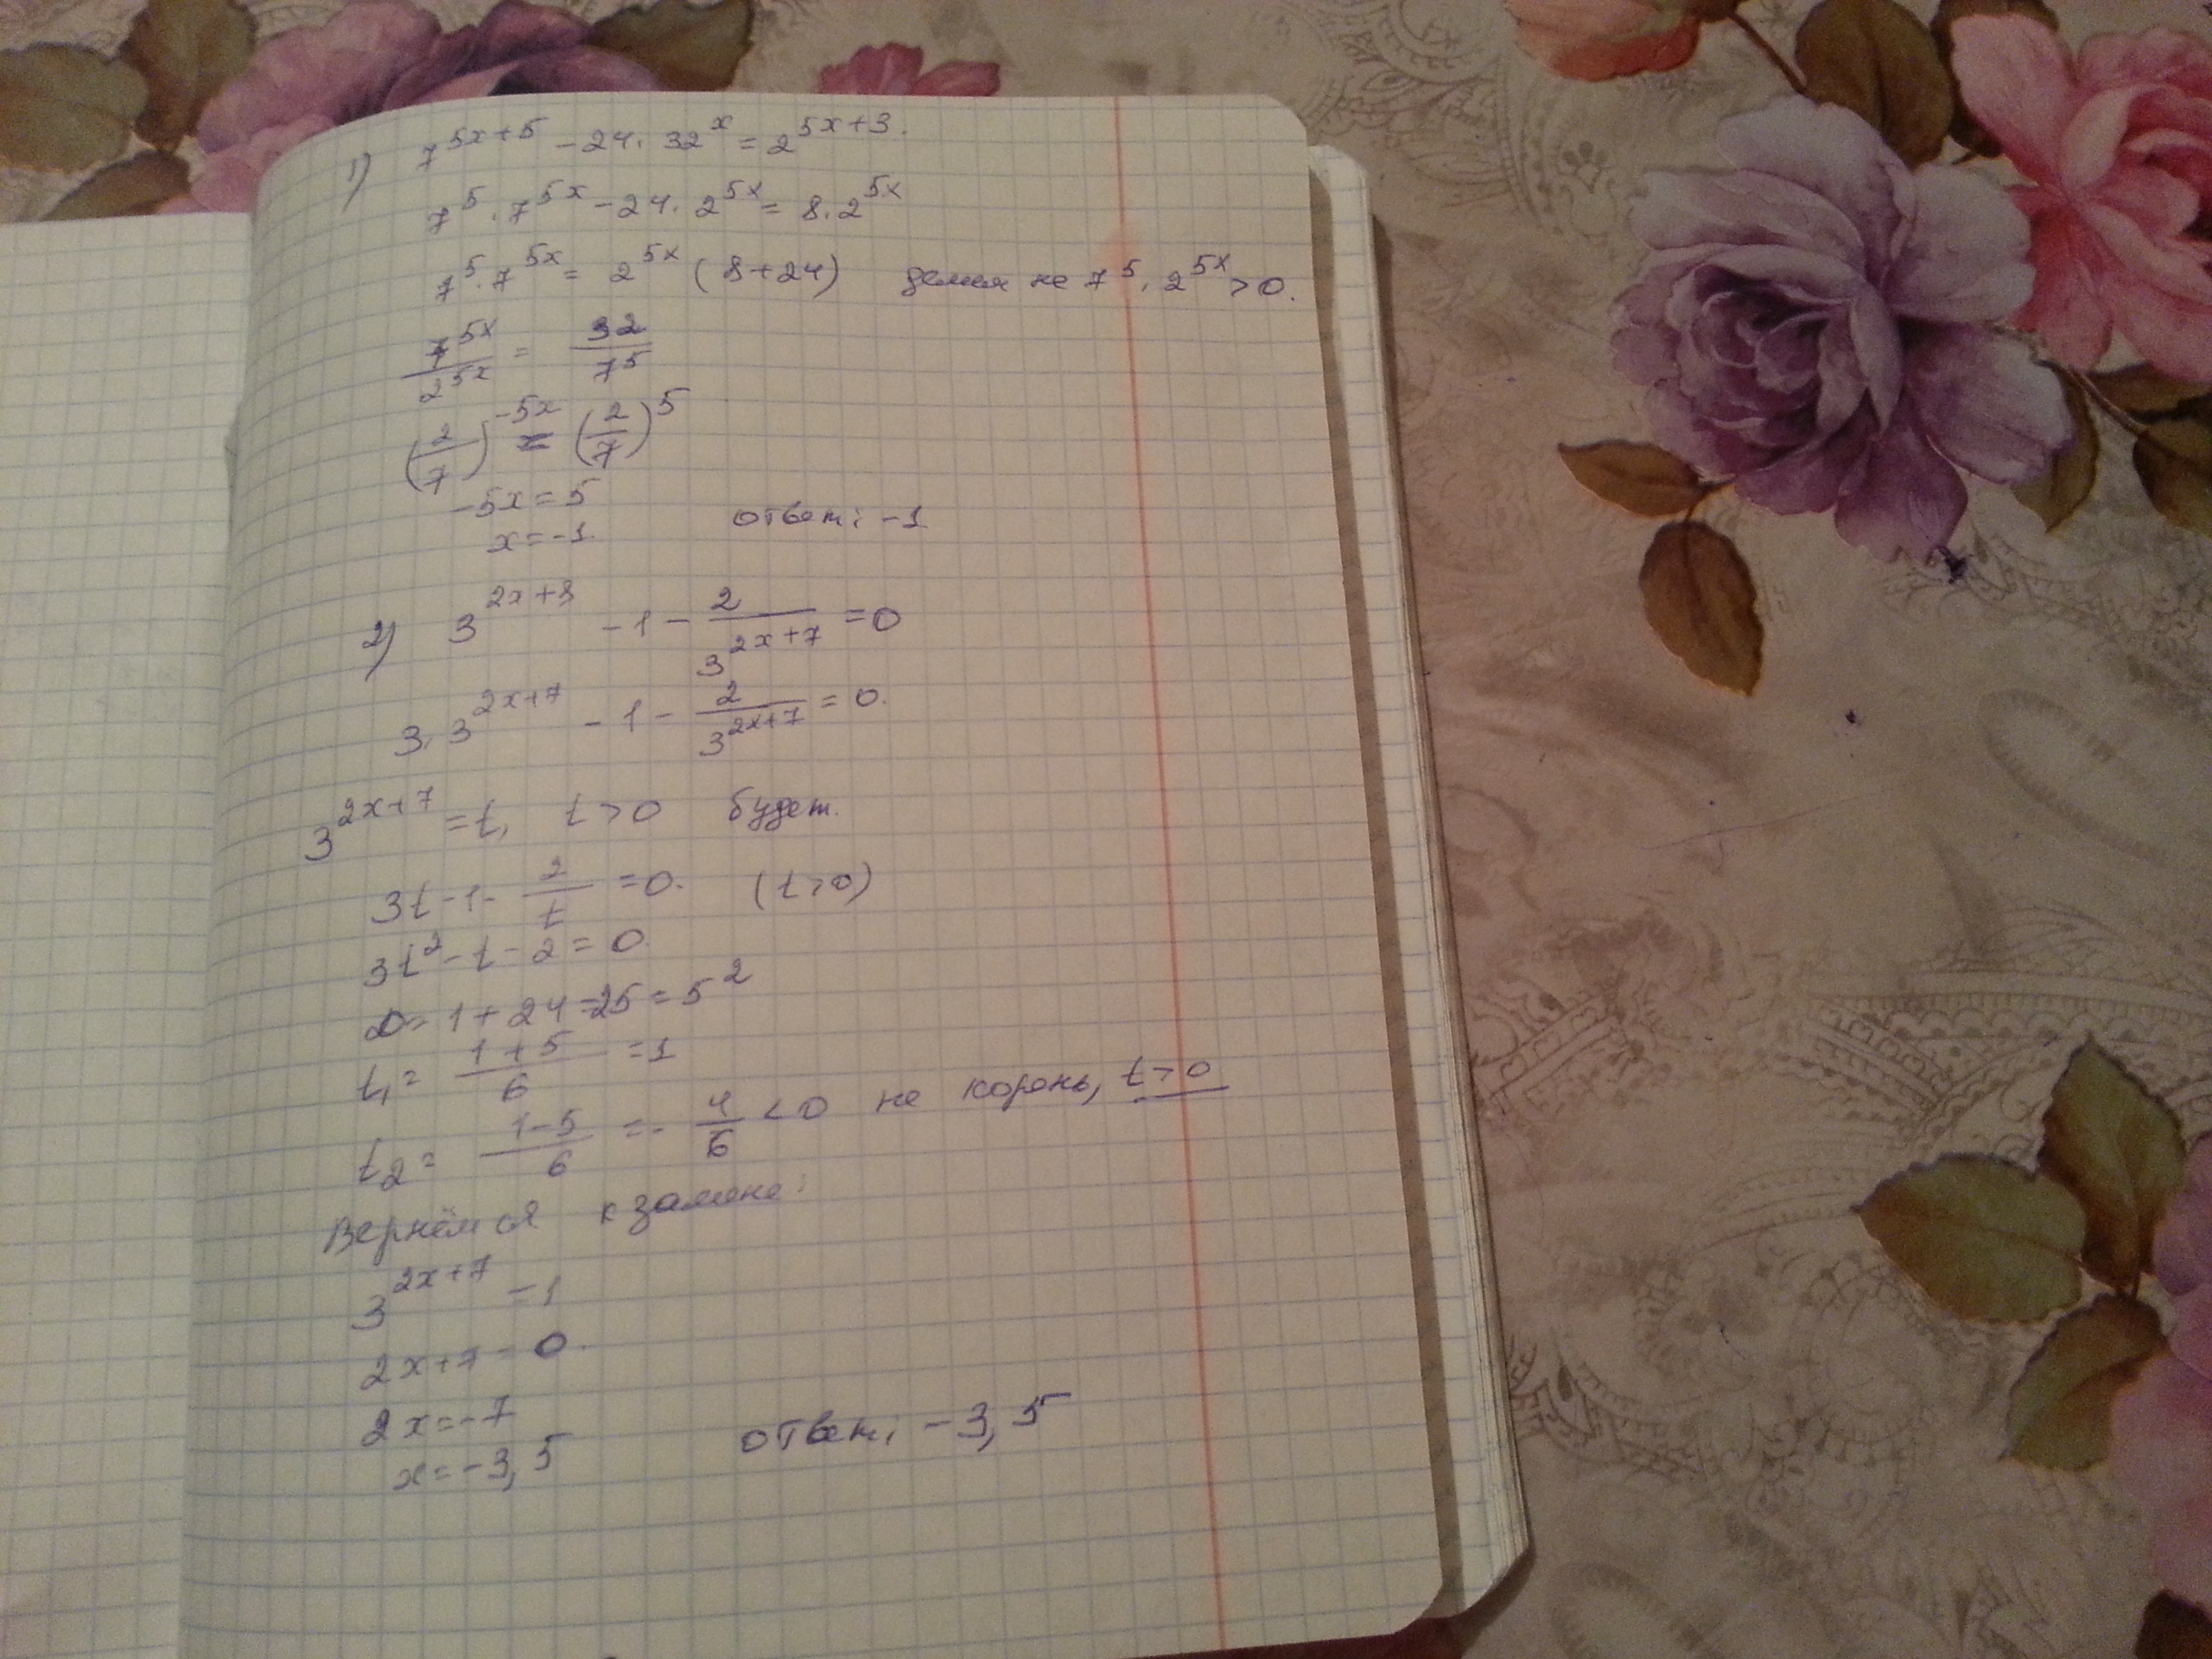 1) 7^{5x+5} - 24 · 32^x = 2^{5x+3}.
7^5 · 7^{5x} - 24 · 2^{5x} = 8 · 2^{5x}
7^5 · 7^{5x} = 2^{5x} (8+24) делим на 7^5 · 2^{5x} > 0.
7^{5x}/2^{5x} = 32/7^5
(2/7)^{-5x} = (2/7)^5
-5x = 5
x = -1. ответ: -1
2) 3^{2x+8} - 1 - 2/3^{2x+7} = 0
3 · 3^{2x+7} - 1 - 2/3^{2x+7} = 0.
3^{2x+7} = t, t > 0 будет.
3t - 1 - 2/t = 0. (t > 0)
3t^2 - t - 2 = 0.
D = 1 + 24 = 25 = 5^2
t_1 = (1+5)/6 = 1
t_2 = (1-5)/6 = - 4/6 < 0 не корень, t > 0
Вернёмся к замене:
3^{2x+7} = 1
2x + 7 = 0.
2x = -7
x = -3,5 ответ: -3,5